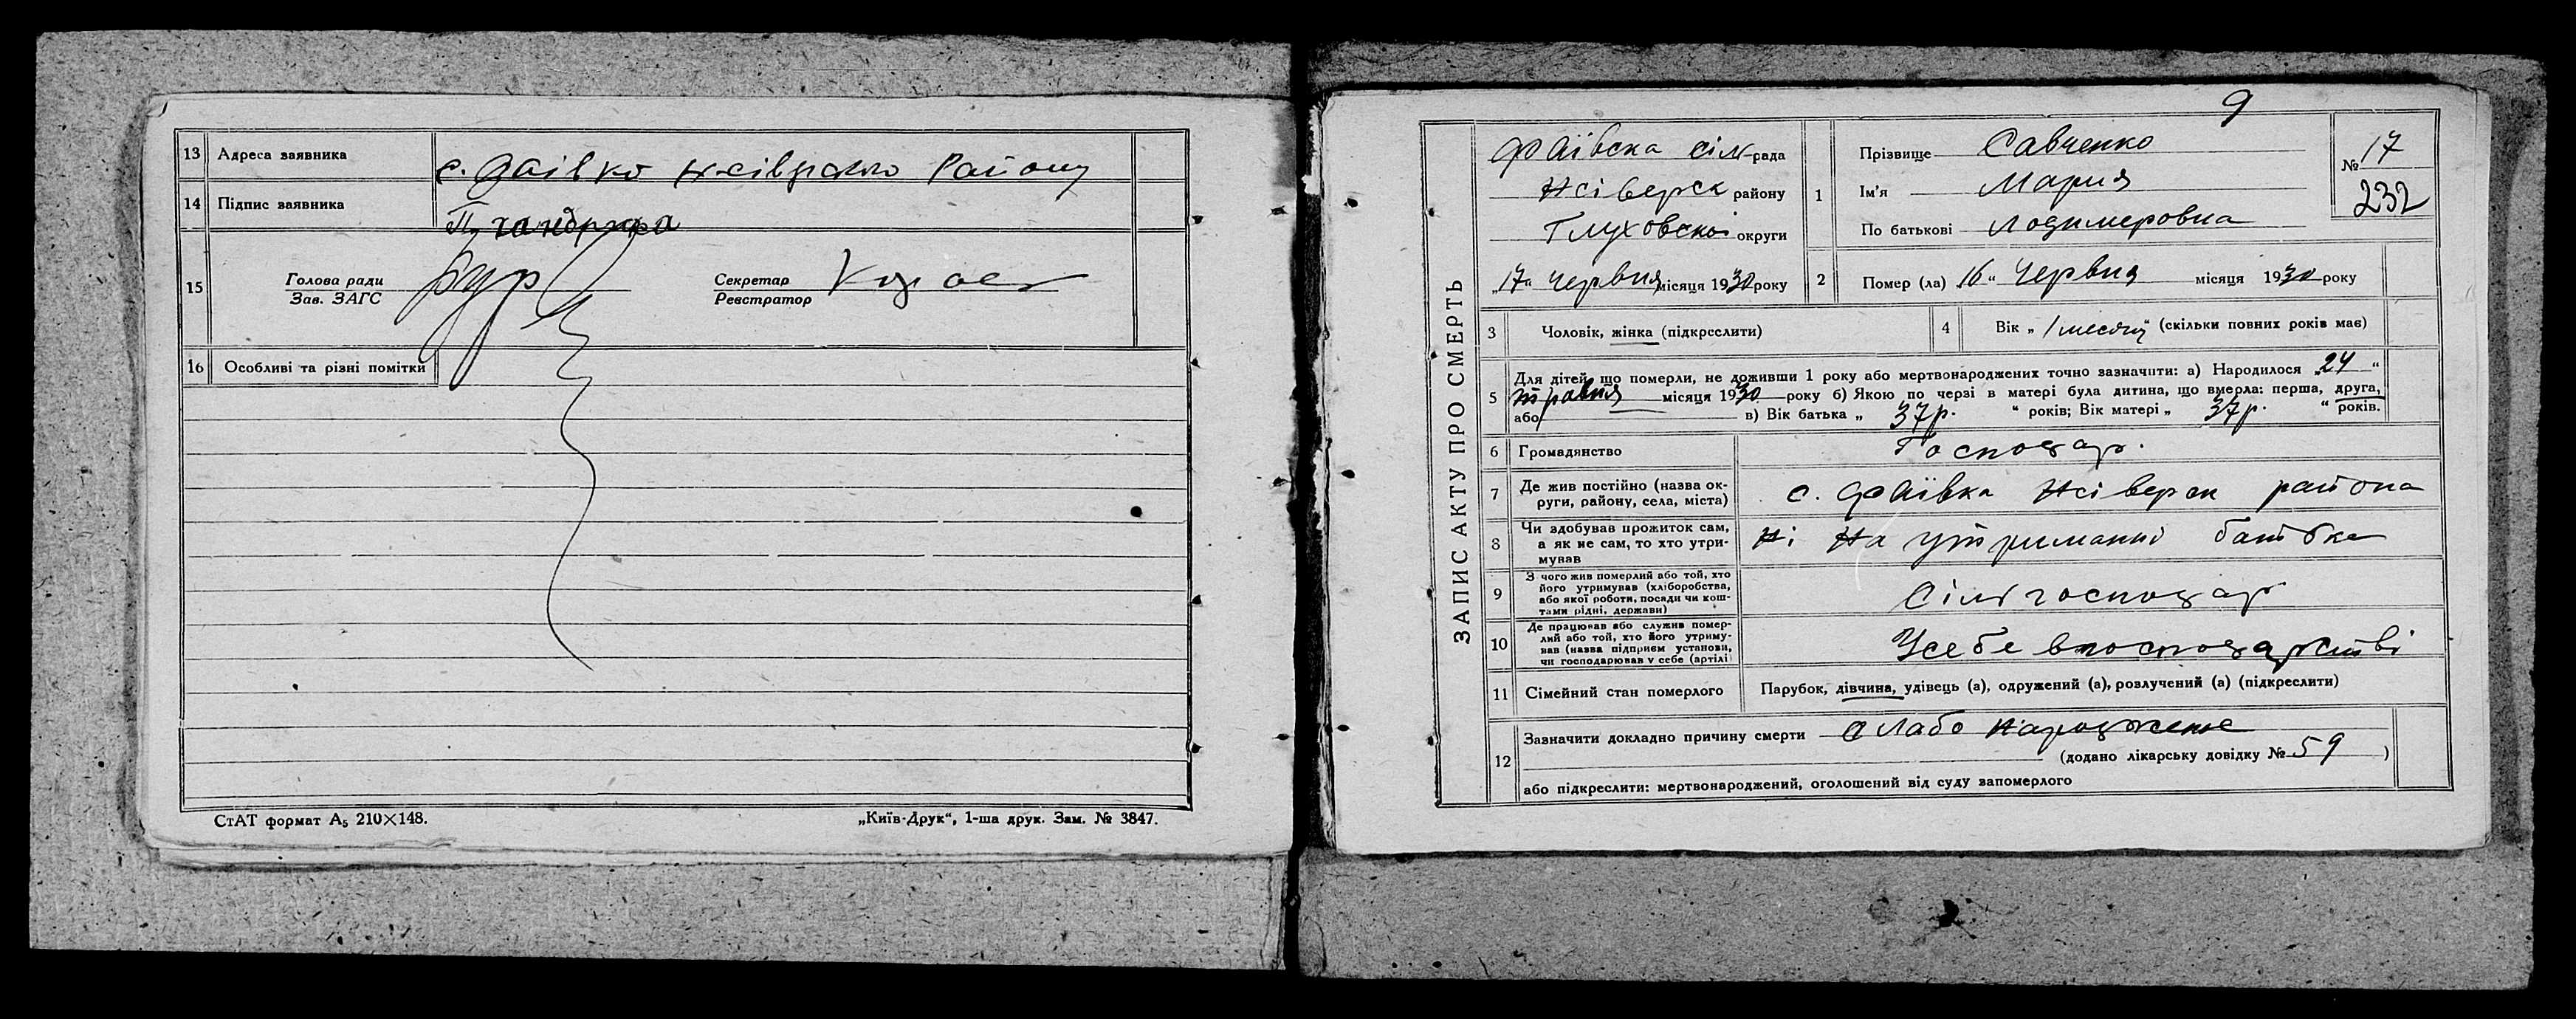 13 Адреса заявника с. Фаівка Н-сіверского Району
14 Підпис заявника
15 Голова ради
Зав. ЗАГС
Секретар
Реєстратор
16 Особливі та різні помітки
СтАТ формат А5 210×148. „Київ-Друк“, 1-ша друк. Зам. № 3847.
9
ЗАПИС АКТУ ПРО СМЕРТЬ
Фаївска сіл рада
Н сіверск району
Глуховскої округи
„17“ червня місяця 1930 року
1 Прізвище Савченко
Ім'я Мария
По батькові Лодимеровна
№ 17
232
2 Помер (ла) „16“ Червня місяця 1930 року
3 Чоловік, жінка (підкреслити)
4 Вік „1 месяц“ (скільки повних років має)
5 Для дітей, що померли, не доживши 1 року або мертвонароджених точно зазначити: а) Народилося „24“
травня місяця 1930 року б) Якою по черзі в матері була дитина, що вмерла: перша, друга,
або в) Вік батька „37р.“ років; Вік матері „37р.“ років.
6 Громадянство Господар.
7 Де жив постійно (назва ок-
руги, району, села, міста) с. Фаївка Н сіверск района
8 Чи здобував прожиток сам,
а як не сам, то хто утри-
мував Ні На утриманні батька
9 З чого жив померлий або той, хто
його утримував (хліборобства,
або якої роботи, посади чи кош-
тами рідні, держави) Сільгосподар
10 Де працював або служив помер-
лий або той, хто його утриму-
вав (назва підприєм установи,
чи господарював у себе (артілі) Усебе вгосподарстві
11 Сімейний стан померлого Парубок, дівчина, удівець (а), одружений (а), розлучений (а) (підкреслити)
12 Зазначити докладно причину смерти Слабо народжене
(додано лікарську довідку № 59 )
або підкреслити: мертвонароджений, оголошений від суду запомерлого